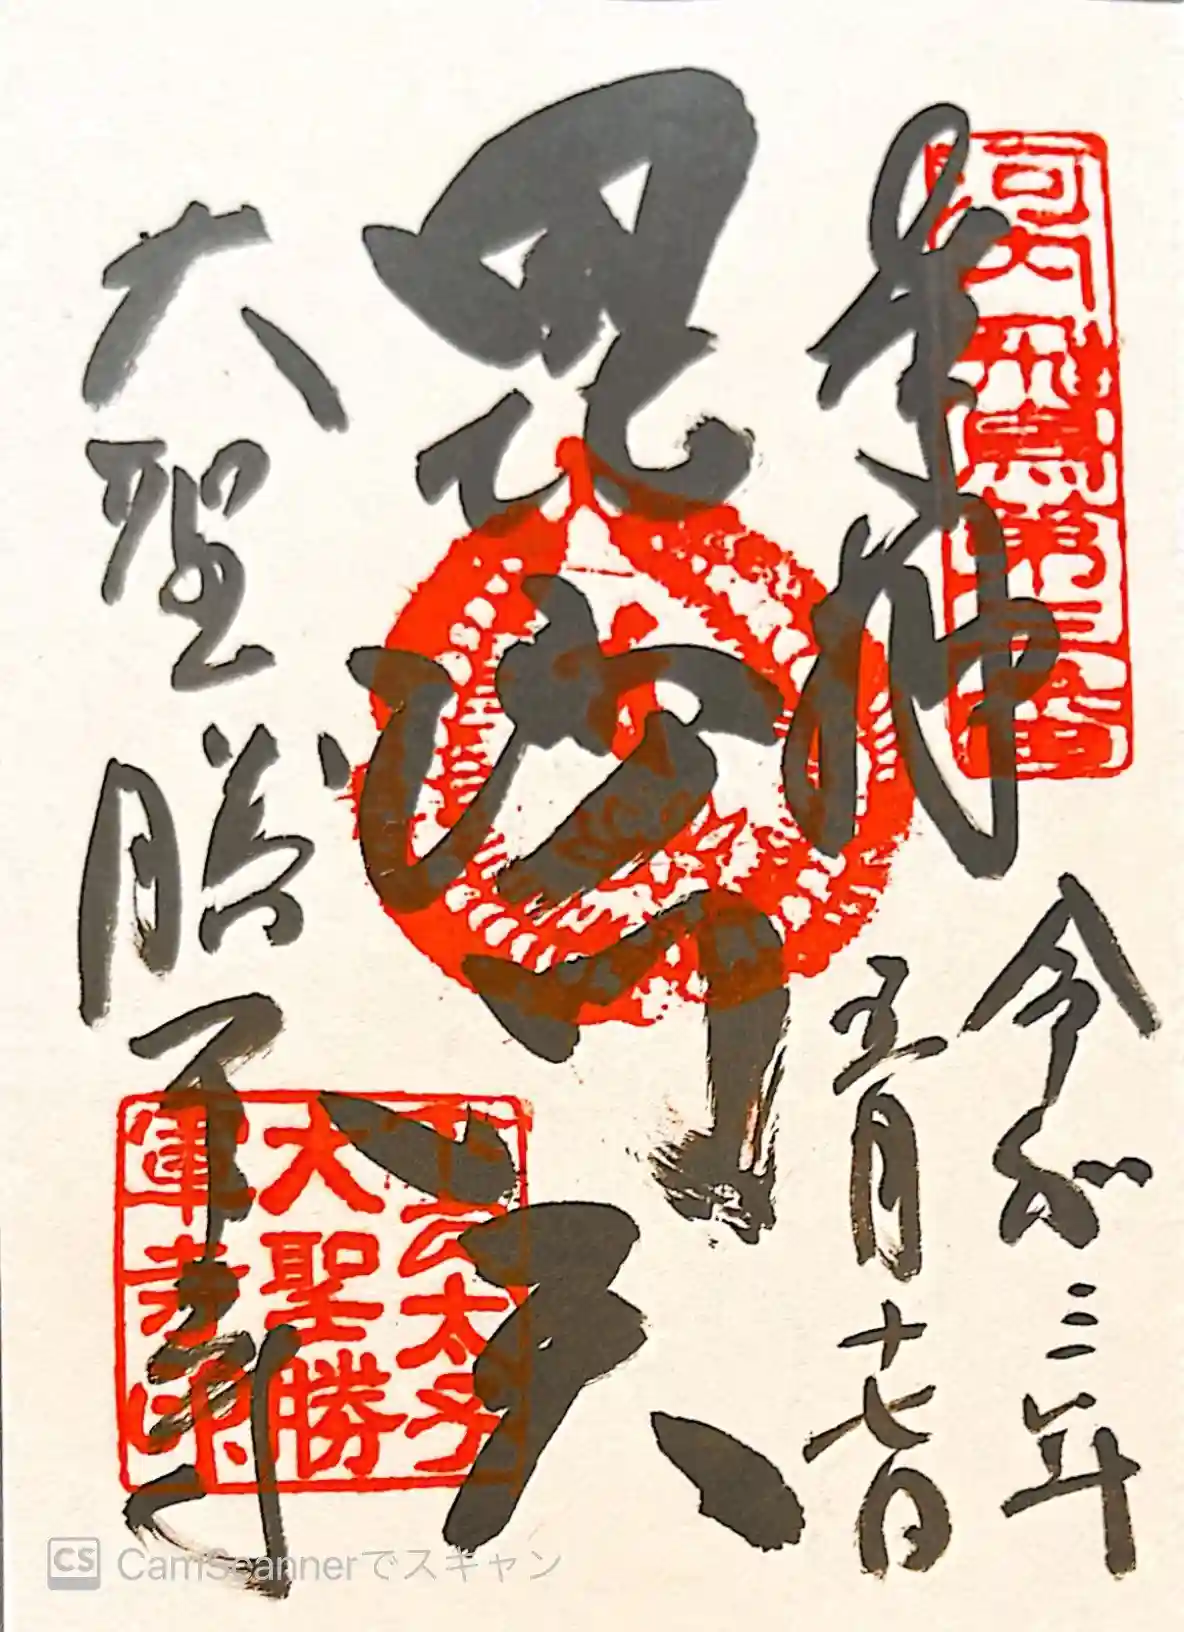 河内飛鳥第三番
奉拝
令和三年
五月十七日
毘沙門天
大聖勝軍寺
太子
大聖勝
軍寺印
CS CamScannerでスキャン